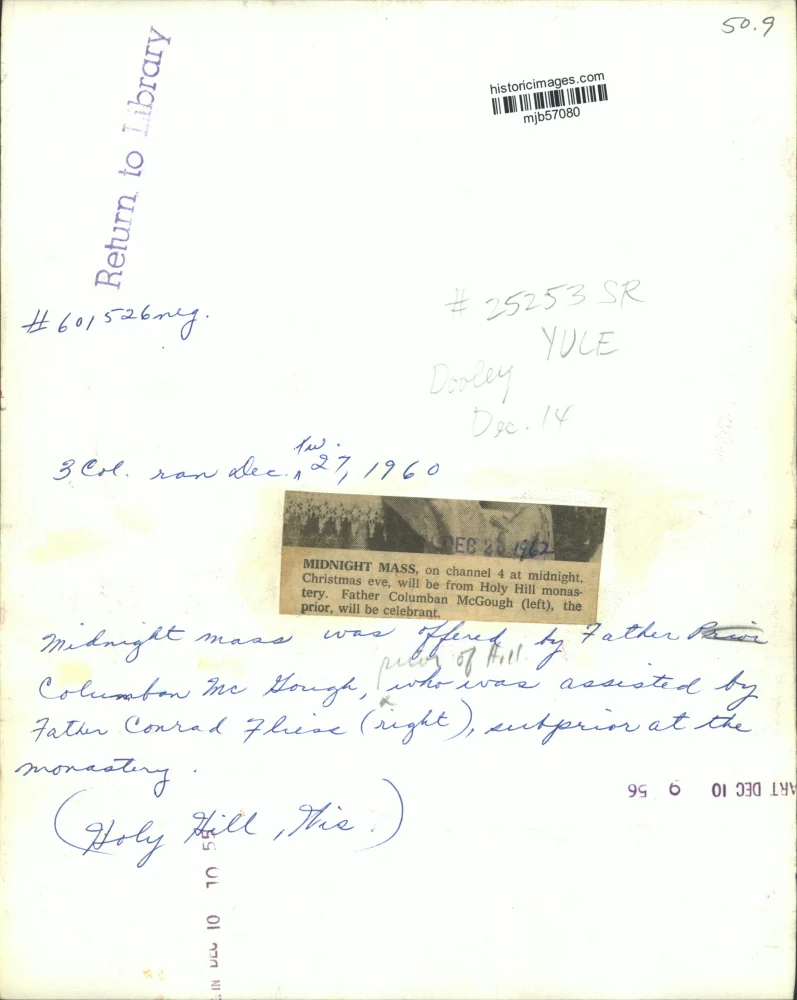 50.9
historicimages.com
mjb57080
Return to Library
# 25253 SR
#601526neg.
YULE
Dooley
Dec. 14
Tu.
3 Col. ran Dec. ^ 27, 1960
DEC 23 1962
MIDNIGHT MASS, on channel 4 at midnight,
Christmas eve, will be from Holy Hill monas-
tery. Father Columban McGough (left), the
prior, will be celebrant.
Midnight mass was offered by Father Prior
prior of Hill
Columban Mc Gough, ^ who was assisted by
Father Conrad Fliess (right), subprior at the
monastery.
(Holy Hill, Wis.)
ART DEC 10 9 56
IN DEC 10 10 55